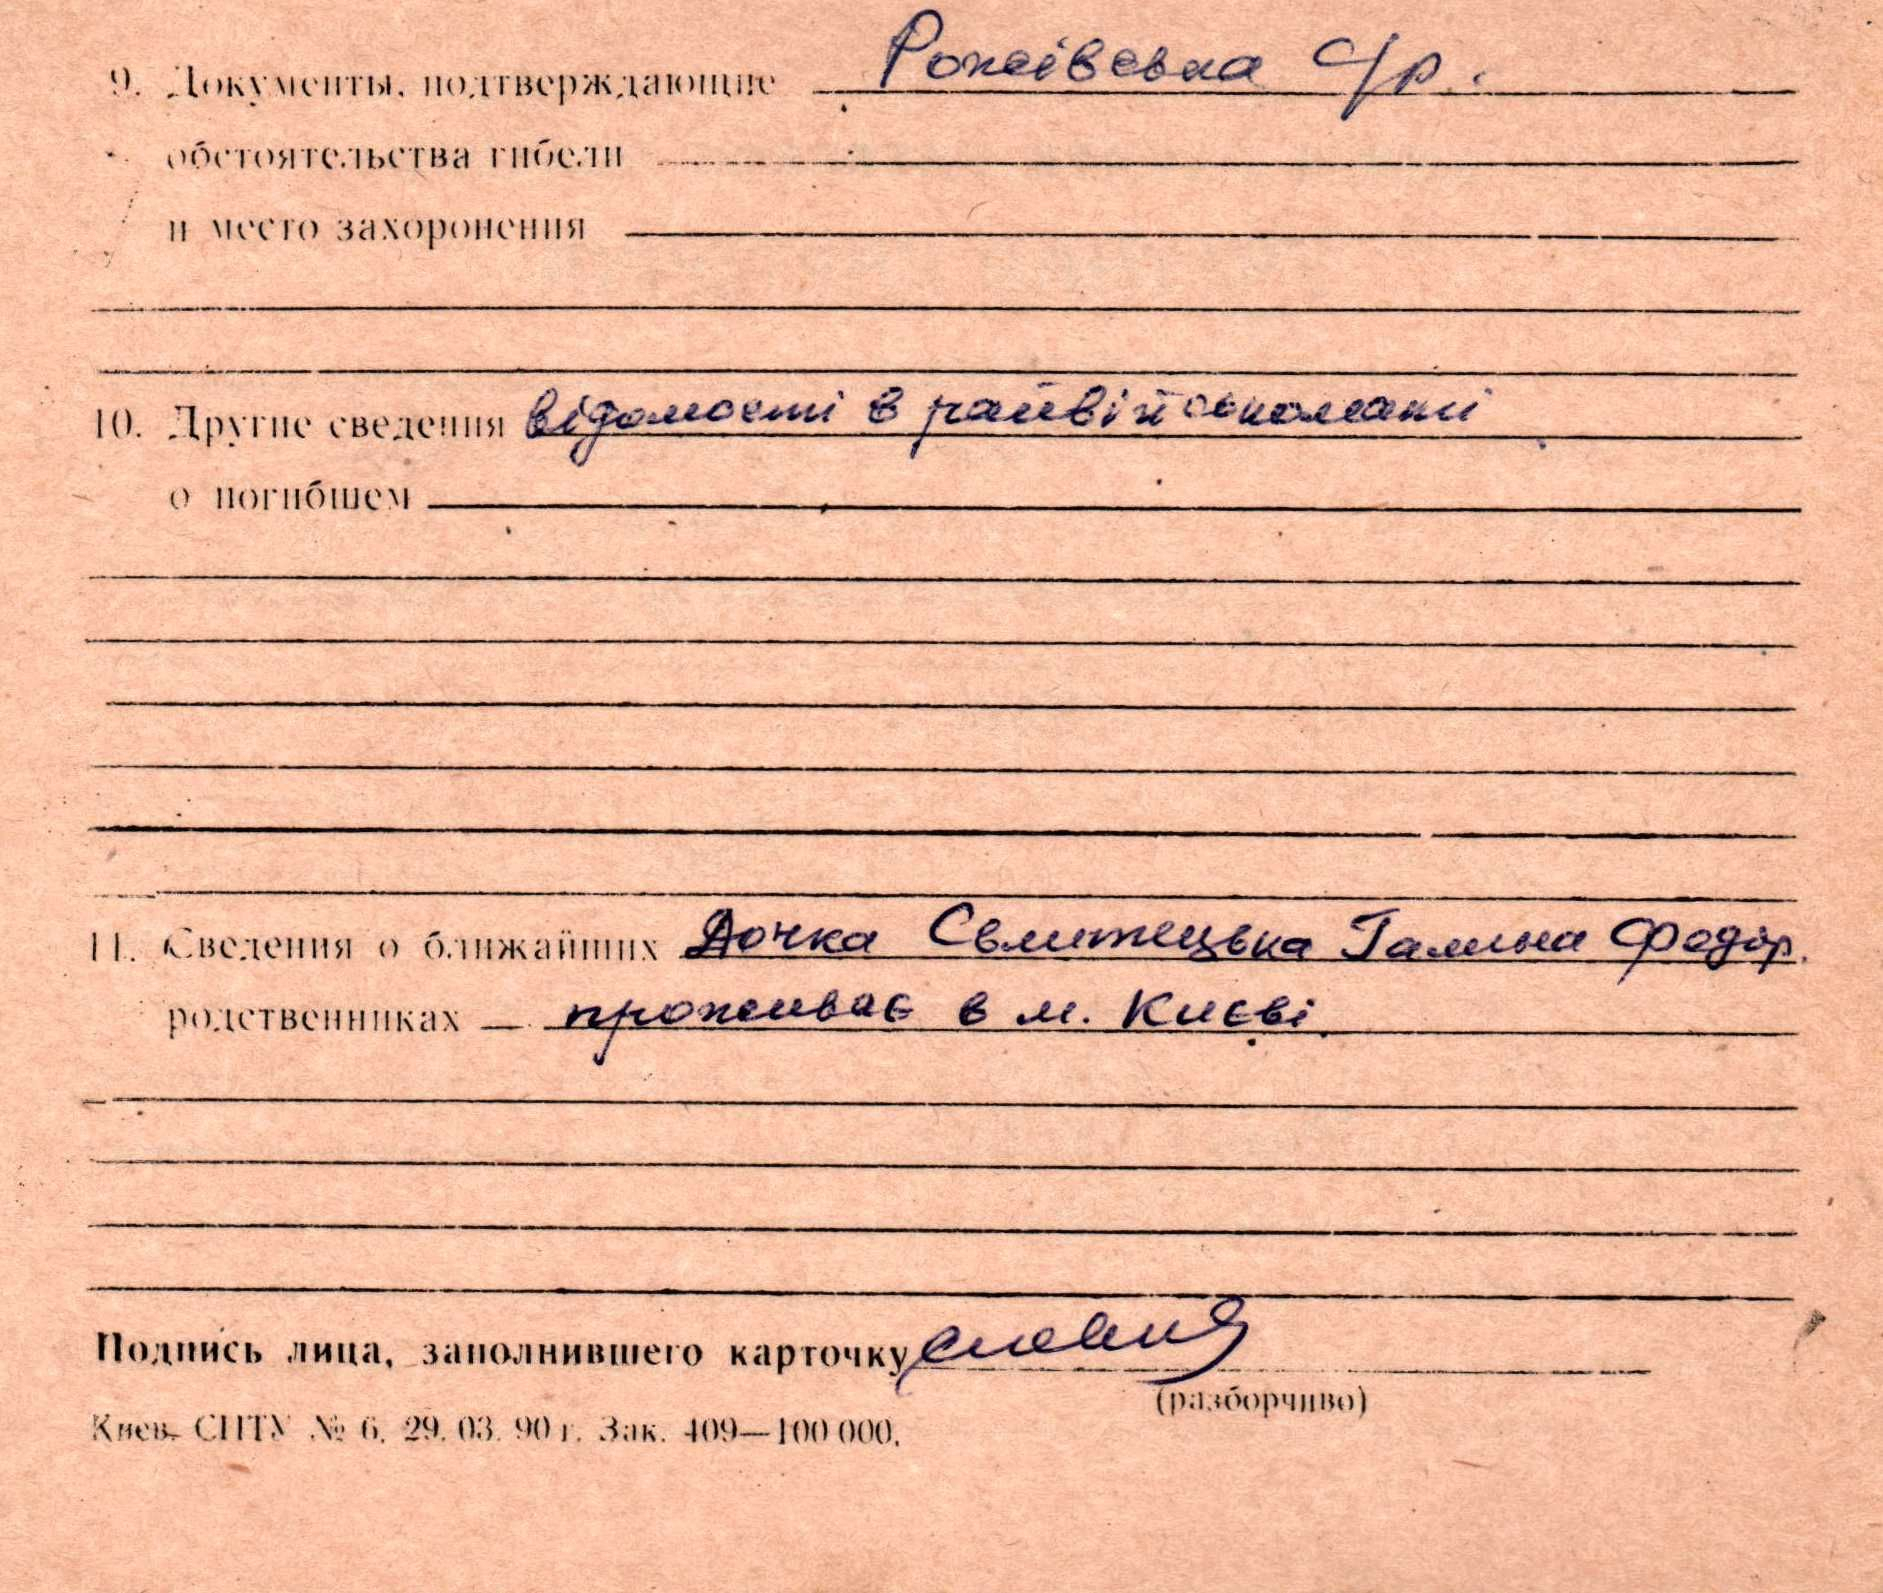 9. Документы, подтверждающие Рожівська с/р.
обстоятельства гибели
и место захоронения
10. Другие сведения відомості в райвійськоматі
о погибшем
11. Сведения о ближайших Дочка Галина Федор.
родственниках проживає в м. Києві.
Подпись лица, заполнившего карточку
(разборчиво)
Киев. СПТУ № 6. 29. 03. 90 г. Зак. 409—100 000.